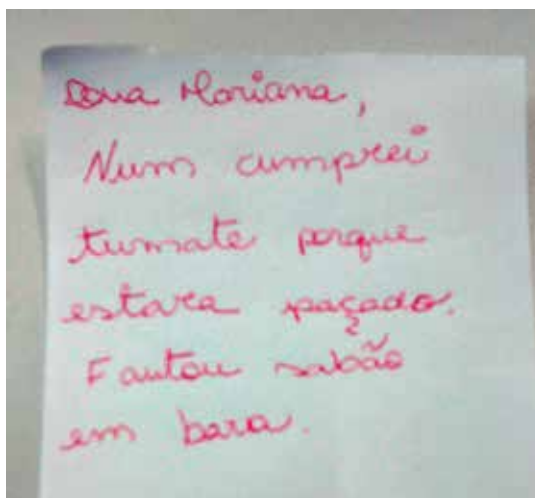 Dona Mariana,
Num cumprei
tumate porque
estava paçado.
Fautou sabão
em bara.